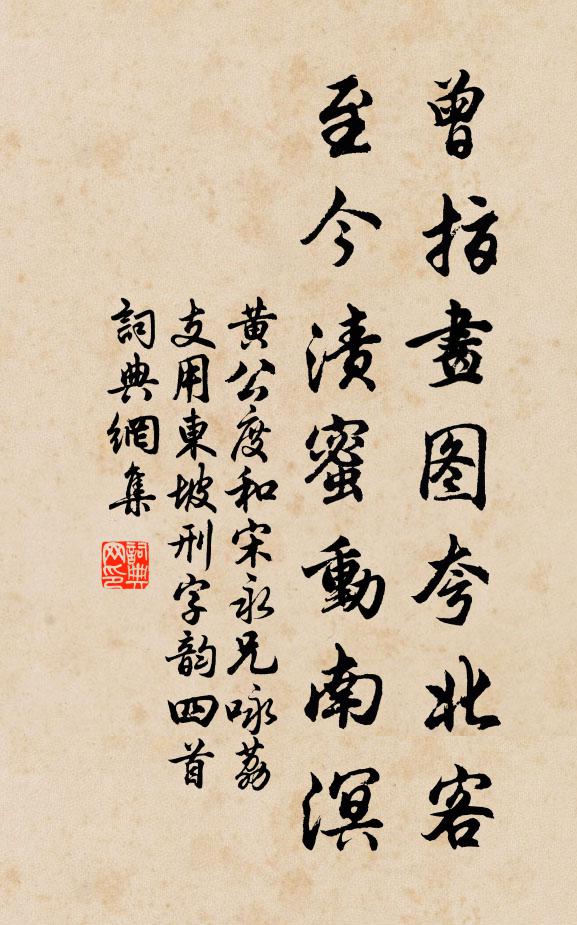 曾指畫图夸北客
至今漬蜜動南溟
黃公度和宋永兄咏荔
支用東坡刑字韵四首
詞典網集
詞典
网印